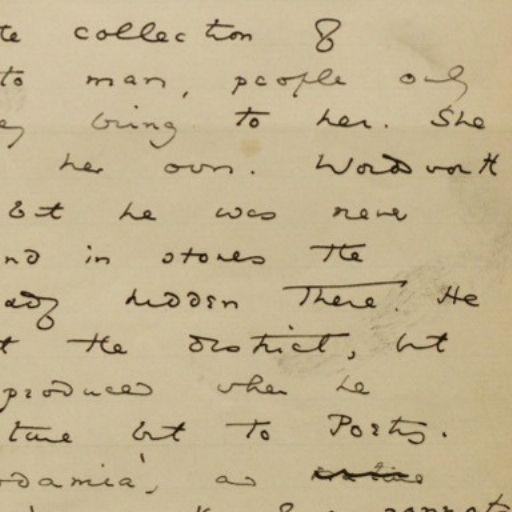 te collection of
to man, people only
ey bring to her. She
her own. Wordsworth
but he was never
nd in stones the
ady hidden there. He
t the district, but
produced when he
ture but to Poetry.
odamia', as